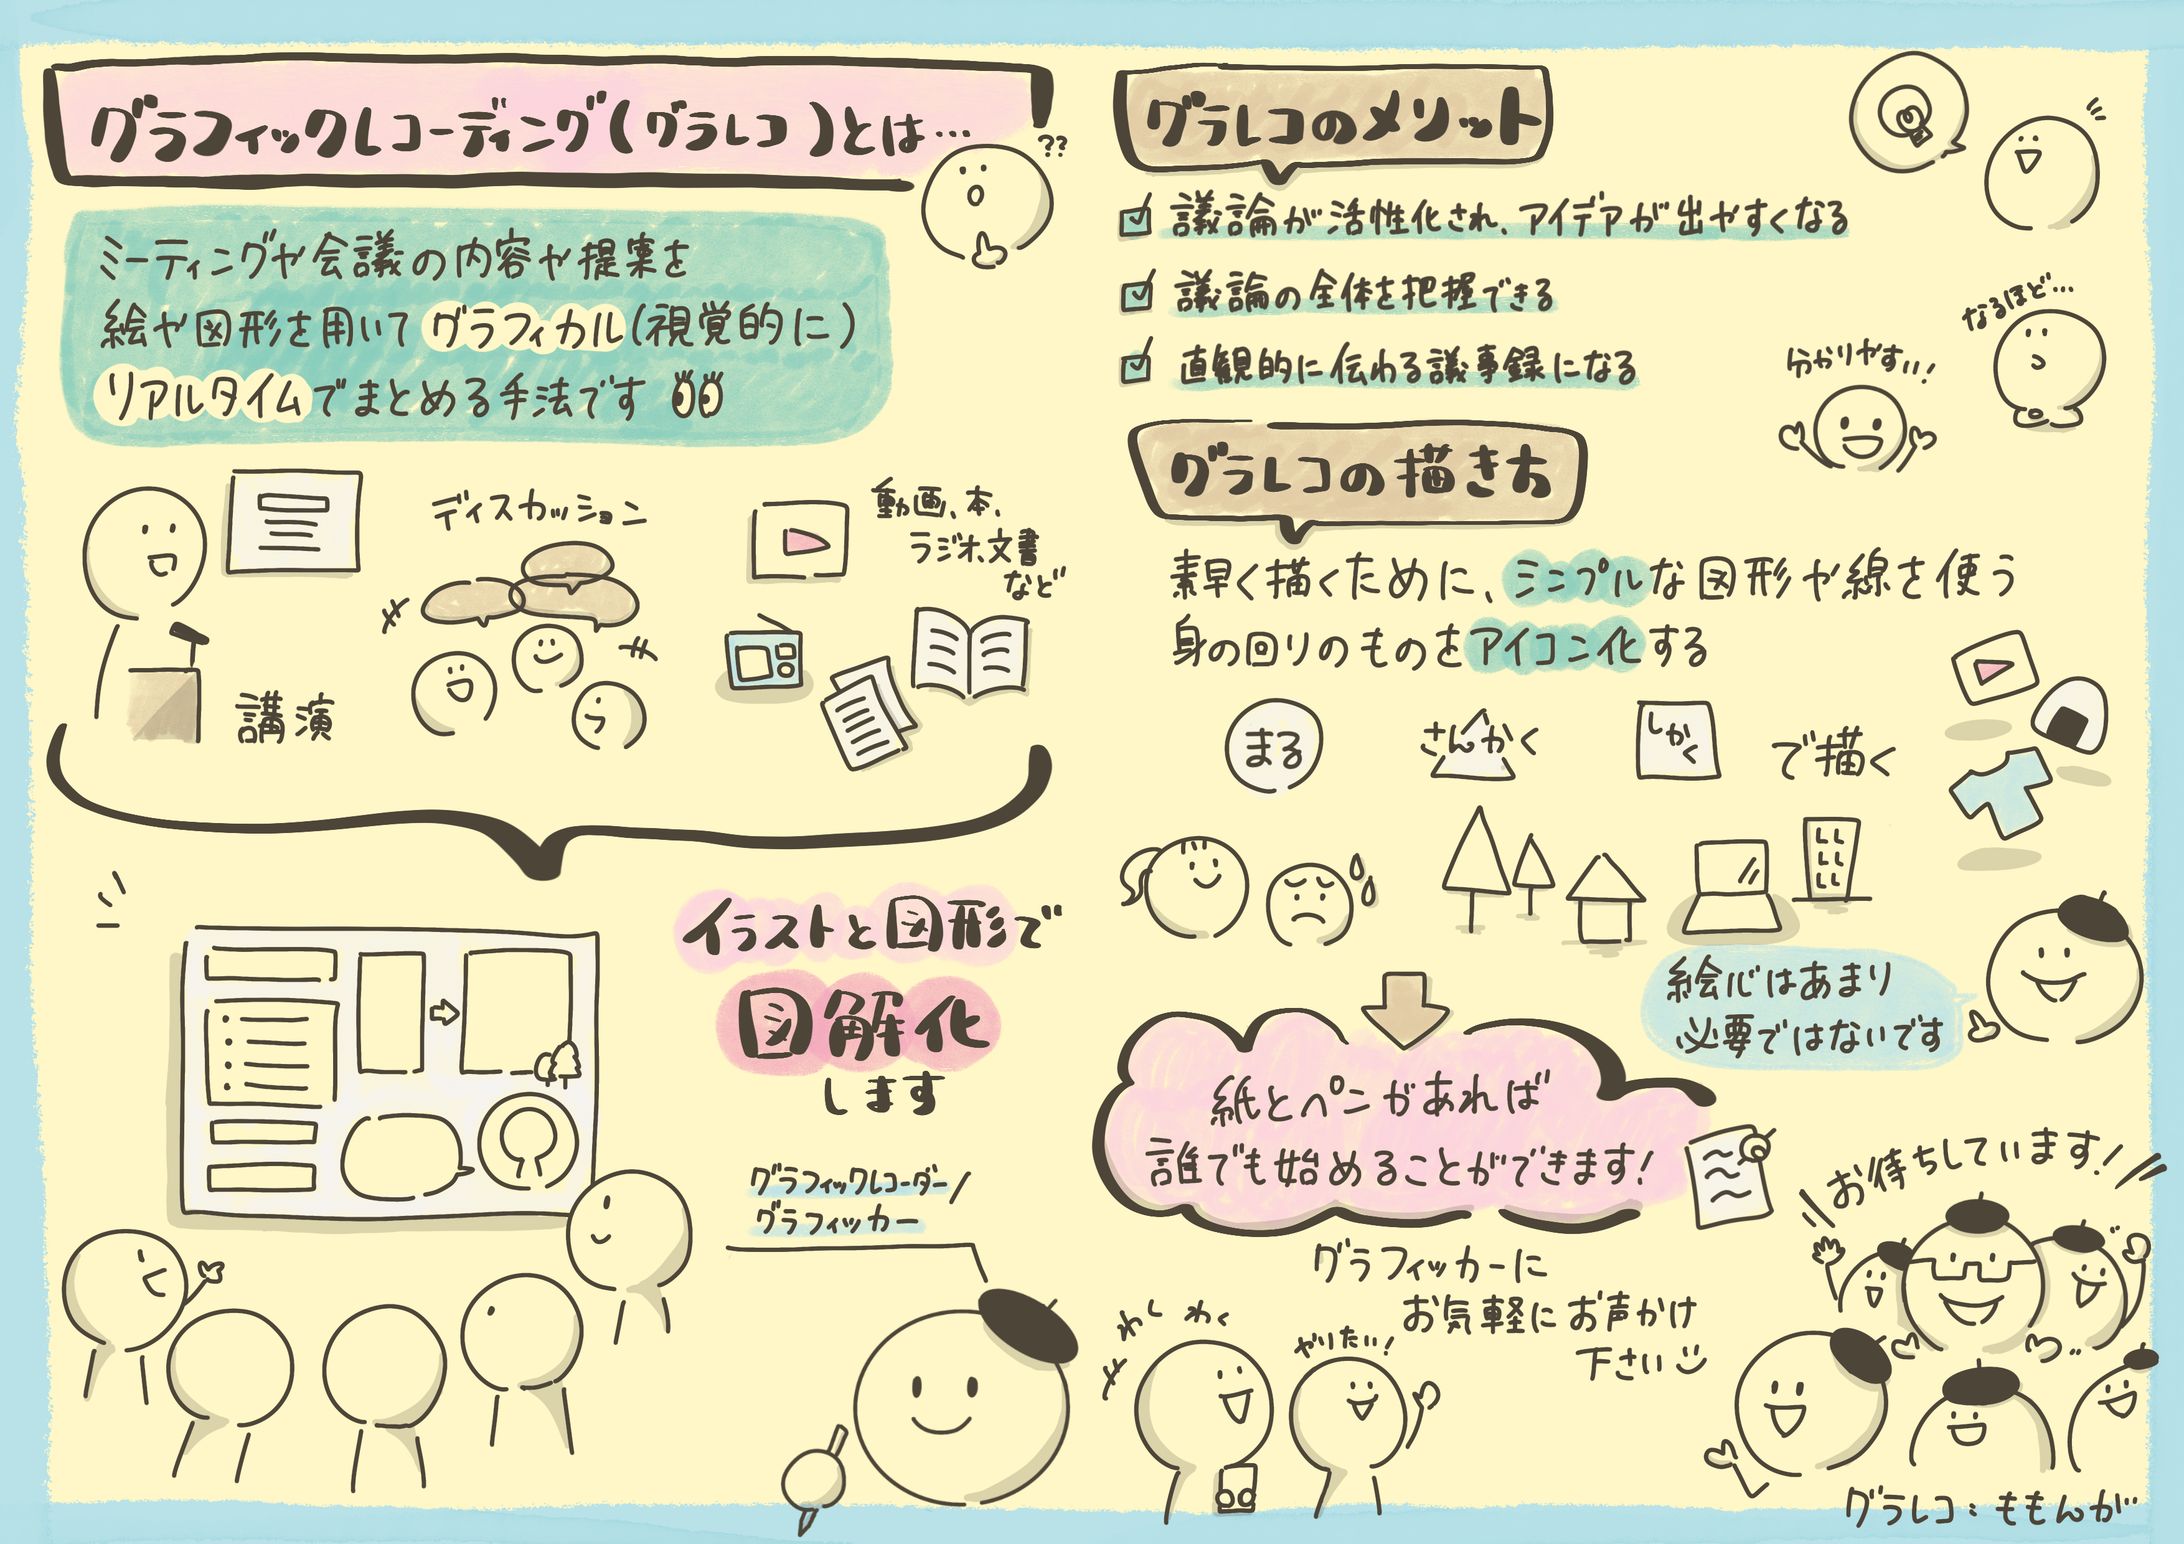 グラフィックレコーディング(グラレコ)とは…
??
ミーティングや会議の内容や提案を
絵や図形を用いてグラフィカル(視覚的に)
リアルタイムでまとめる手法です
講演
ディスカッション
動画、本、
ラジオ、文書
など
イラストと図形で
図解化
します
グラフィックレコーダー/
グラフィッカー
グラレコのメリット
議論が活性化され、アイデアが出やすくなる
議論の全体を把握できる
直観的に伝わる議事録になる
なるほど…
分かりやすい!
グラレコの描き方
素早く描くために、シンプルな図形や線を使う
身の回りのものをアイコン化する
まる
さんかく
しか
く
で描く
絵心はあまり
必要ではないです
紙とペンがあれば
誰でも始めることができます!
グラフィッカーに
お気軽にお声かけ
下さい
わくわく
やりたい!
お待ちしています!
グラレコ:ももんが